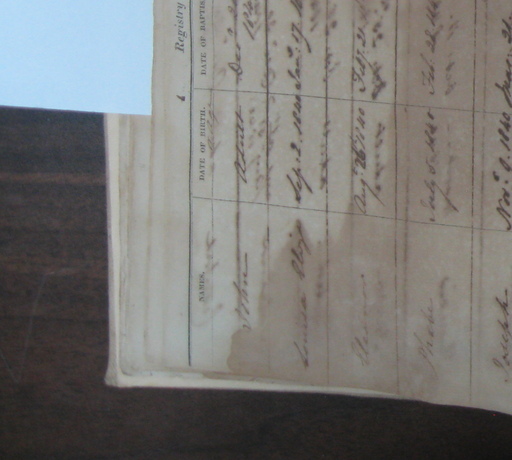 Registry
NAMES. DATE OF BIRTH. DATE OF BAPTIS
John Adult Decr
184
Louisa Eliza Sep: 2. 1840 Jany: 17.
Eleanor Augt 26 1840 Feby. 21
Phebe July 5. 1840 Feb. 28
Joseph Novr 9. 1840 Mar. 21.